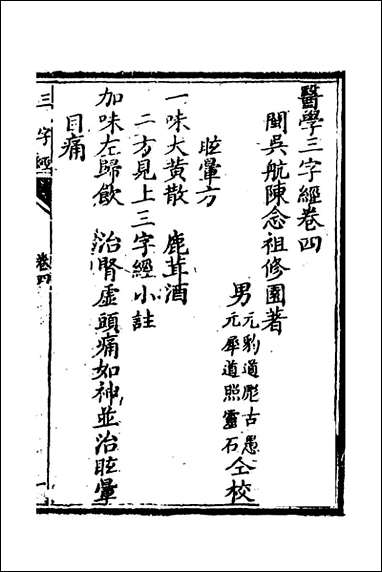 醫學三字經卷四
閩吳航陳念祖修園著
男
元豹道彪古愚
元犀道照靈石
仝校
眩暈方
一味大黃散　鹿茸酒
二方見上三字經小註
加味左歸飲　治腎虛頭痛如神並治眩暈
目痛
三字經
卷四
一